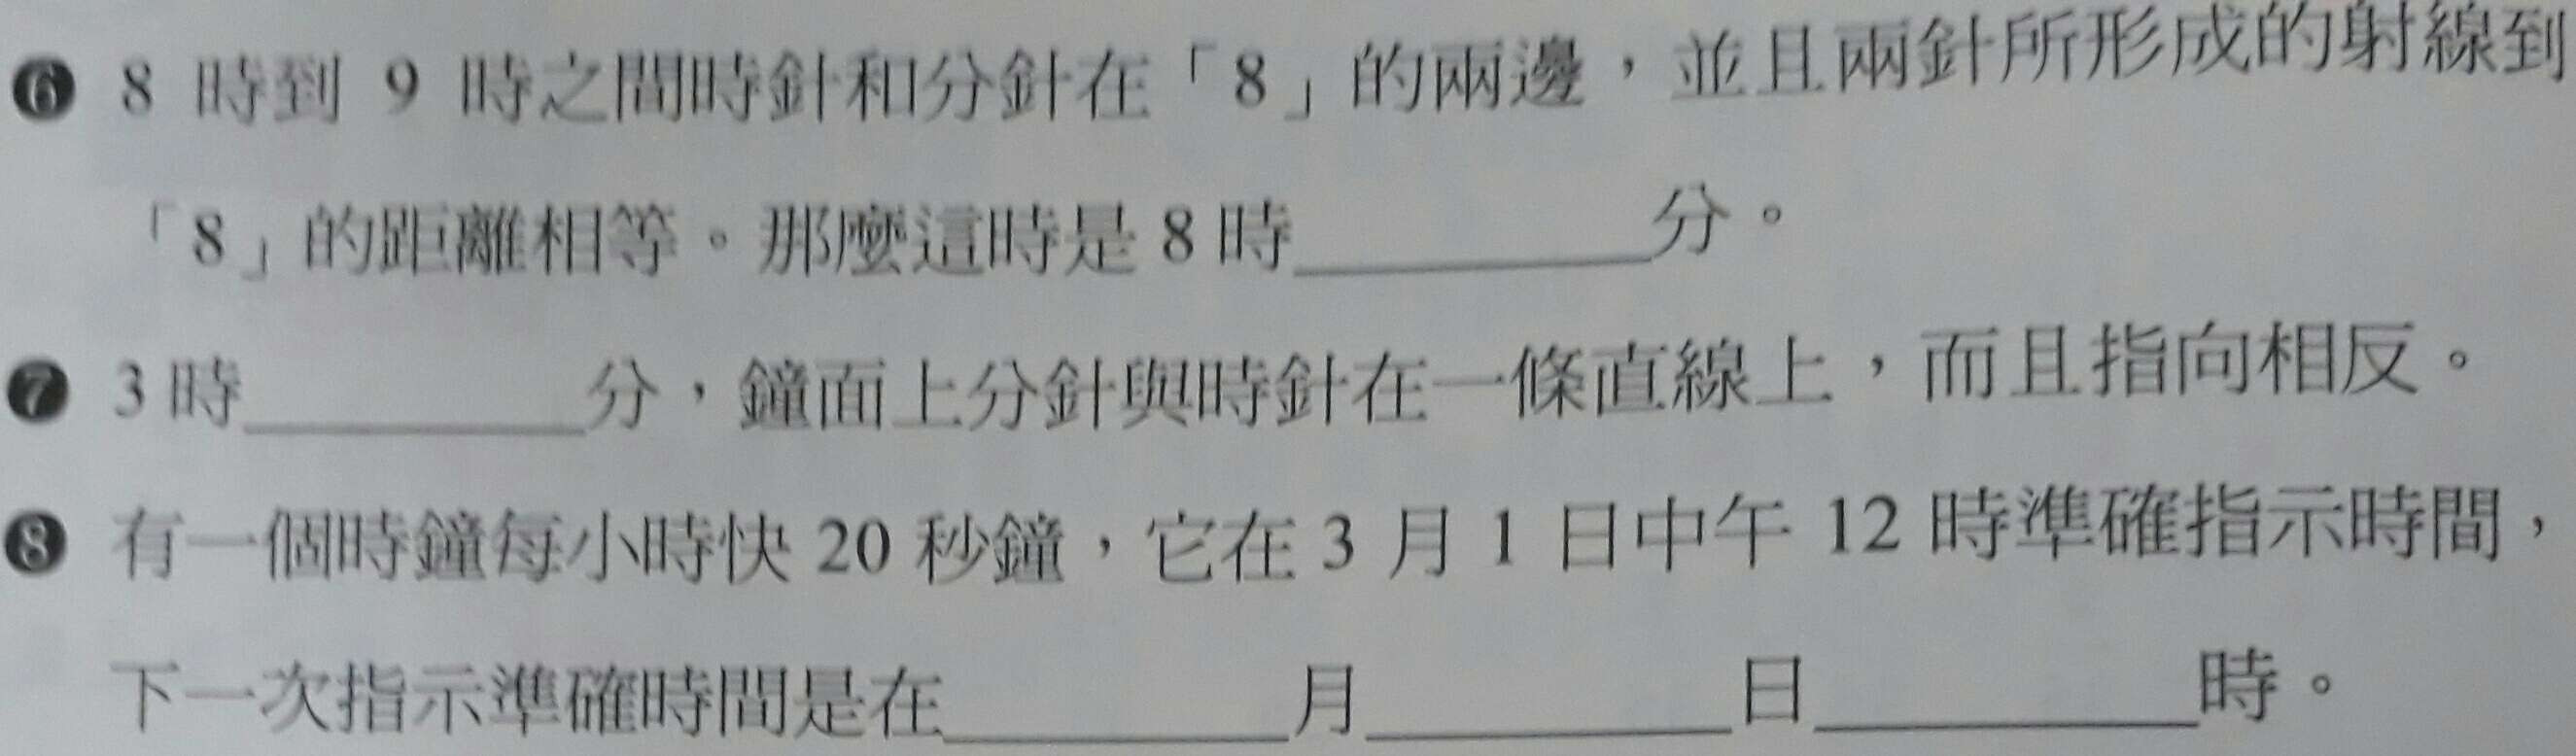 ❻ 8 時到 9 時之間時針和分針在「8」的兩邊，並且兩針所形成的射線到
「8」的距離相等。那麼這時是 8 時________分。
❼ 3 時________分，鐘面上分針與時針在一條直線上，而且指向相反。
❽ 有一個時鐘每小時快 20 秒鐘，它在 3 月 1 日中午 12 時準確指示時間，
下一次指示準確時間是在________月________日________時。